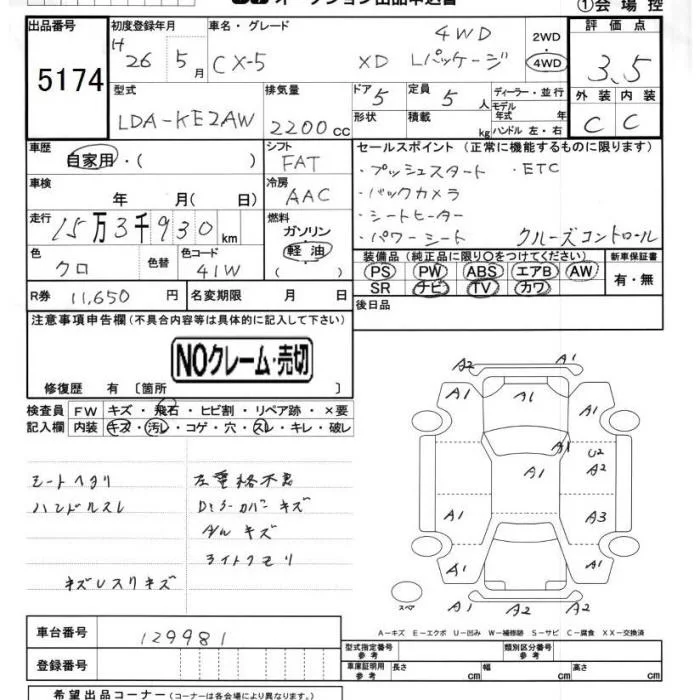 オークション出品申込書
①会場控
出品番号 初度登録年月 車名・グレード 評価点
5174
H 26 5月
CX-5 XD 4WD Lパッケージ
2WD
4WD
3.5
型式 排気量 ドア 定員 ディーラー・並行 外装 内装
LDA-KE2AW 2200cc 5 5人 モデル年式 年 C C
形状 積載 kg ハンドル 左・右
車歴 シフト セールスポイント (正常に機能するものに限ります)
自家用・( ) FAT
・プッシュスタート ・ETC
車検 年 月( 日) 冷房 AAC
・バックカメラ
・シートヒーター
走行 15万3千930km 燃料 ガソリン 軽油
・パワーシート クルーズコントロール
色 クロ 色替 色コード 41W
装備品 (純正品に限り○をつけてください) 新車保証書
PS PW ABS エアB AW 有・無
SR ナビ TV カワ
R券 11,650円 名変期限 月 日 後日品
注意事項申告欄 (不具合内容等は具体的に記入して下さい)
NOクレーム・売切
修復歴 有 〔箇所 〕
検査員記入欄 FW キズ・飛石・ヒビ割・リペア跡・×要
内装 キズ・汚レ・コゲ・穴・スレ・キレ・破レ
シートヘタリ
ハンドルスレ
キズUスリキズ
ドアミラーカバーキズ
A/Wキズ
ライトクモリ
A2 A1
A1 A1 A1
A1 U2
A1 A2
A1 A3
A1 A1
A1 A2 A2
スペア
A-キズ E-エクボ U-凹み W-補修跡 S-サビ C-腐食 XX-交換済
車台番号 129981
登録番号
型式指定番号 参考 類別区分番号 参考
車庫証明用 参考 長さ cm 幅 cm 高さ cm
希望出品コーナー (コーナーは各会場により異なります。)